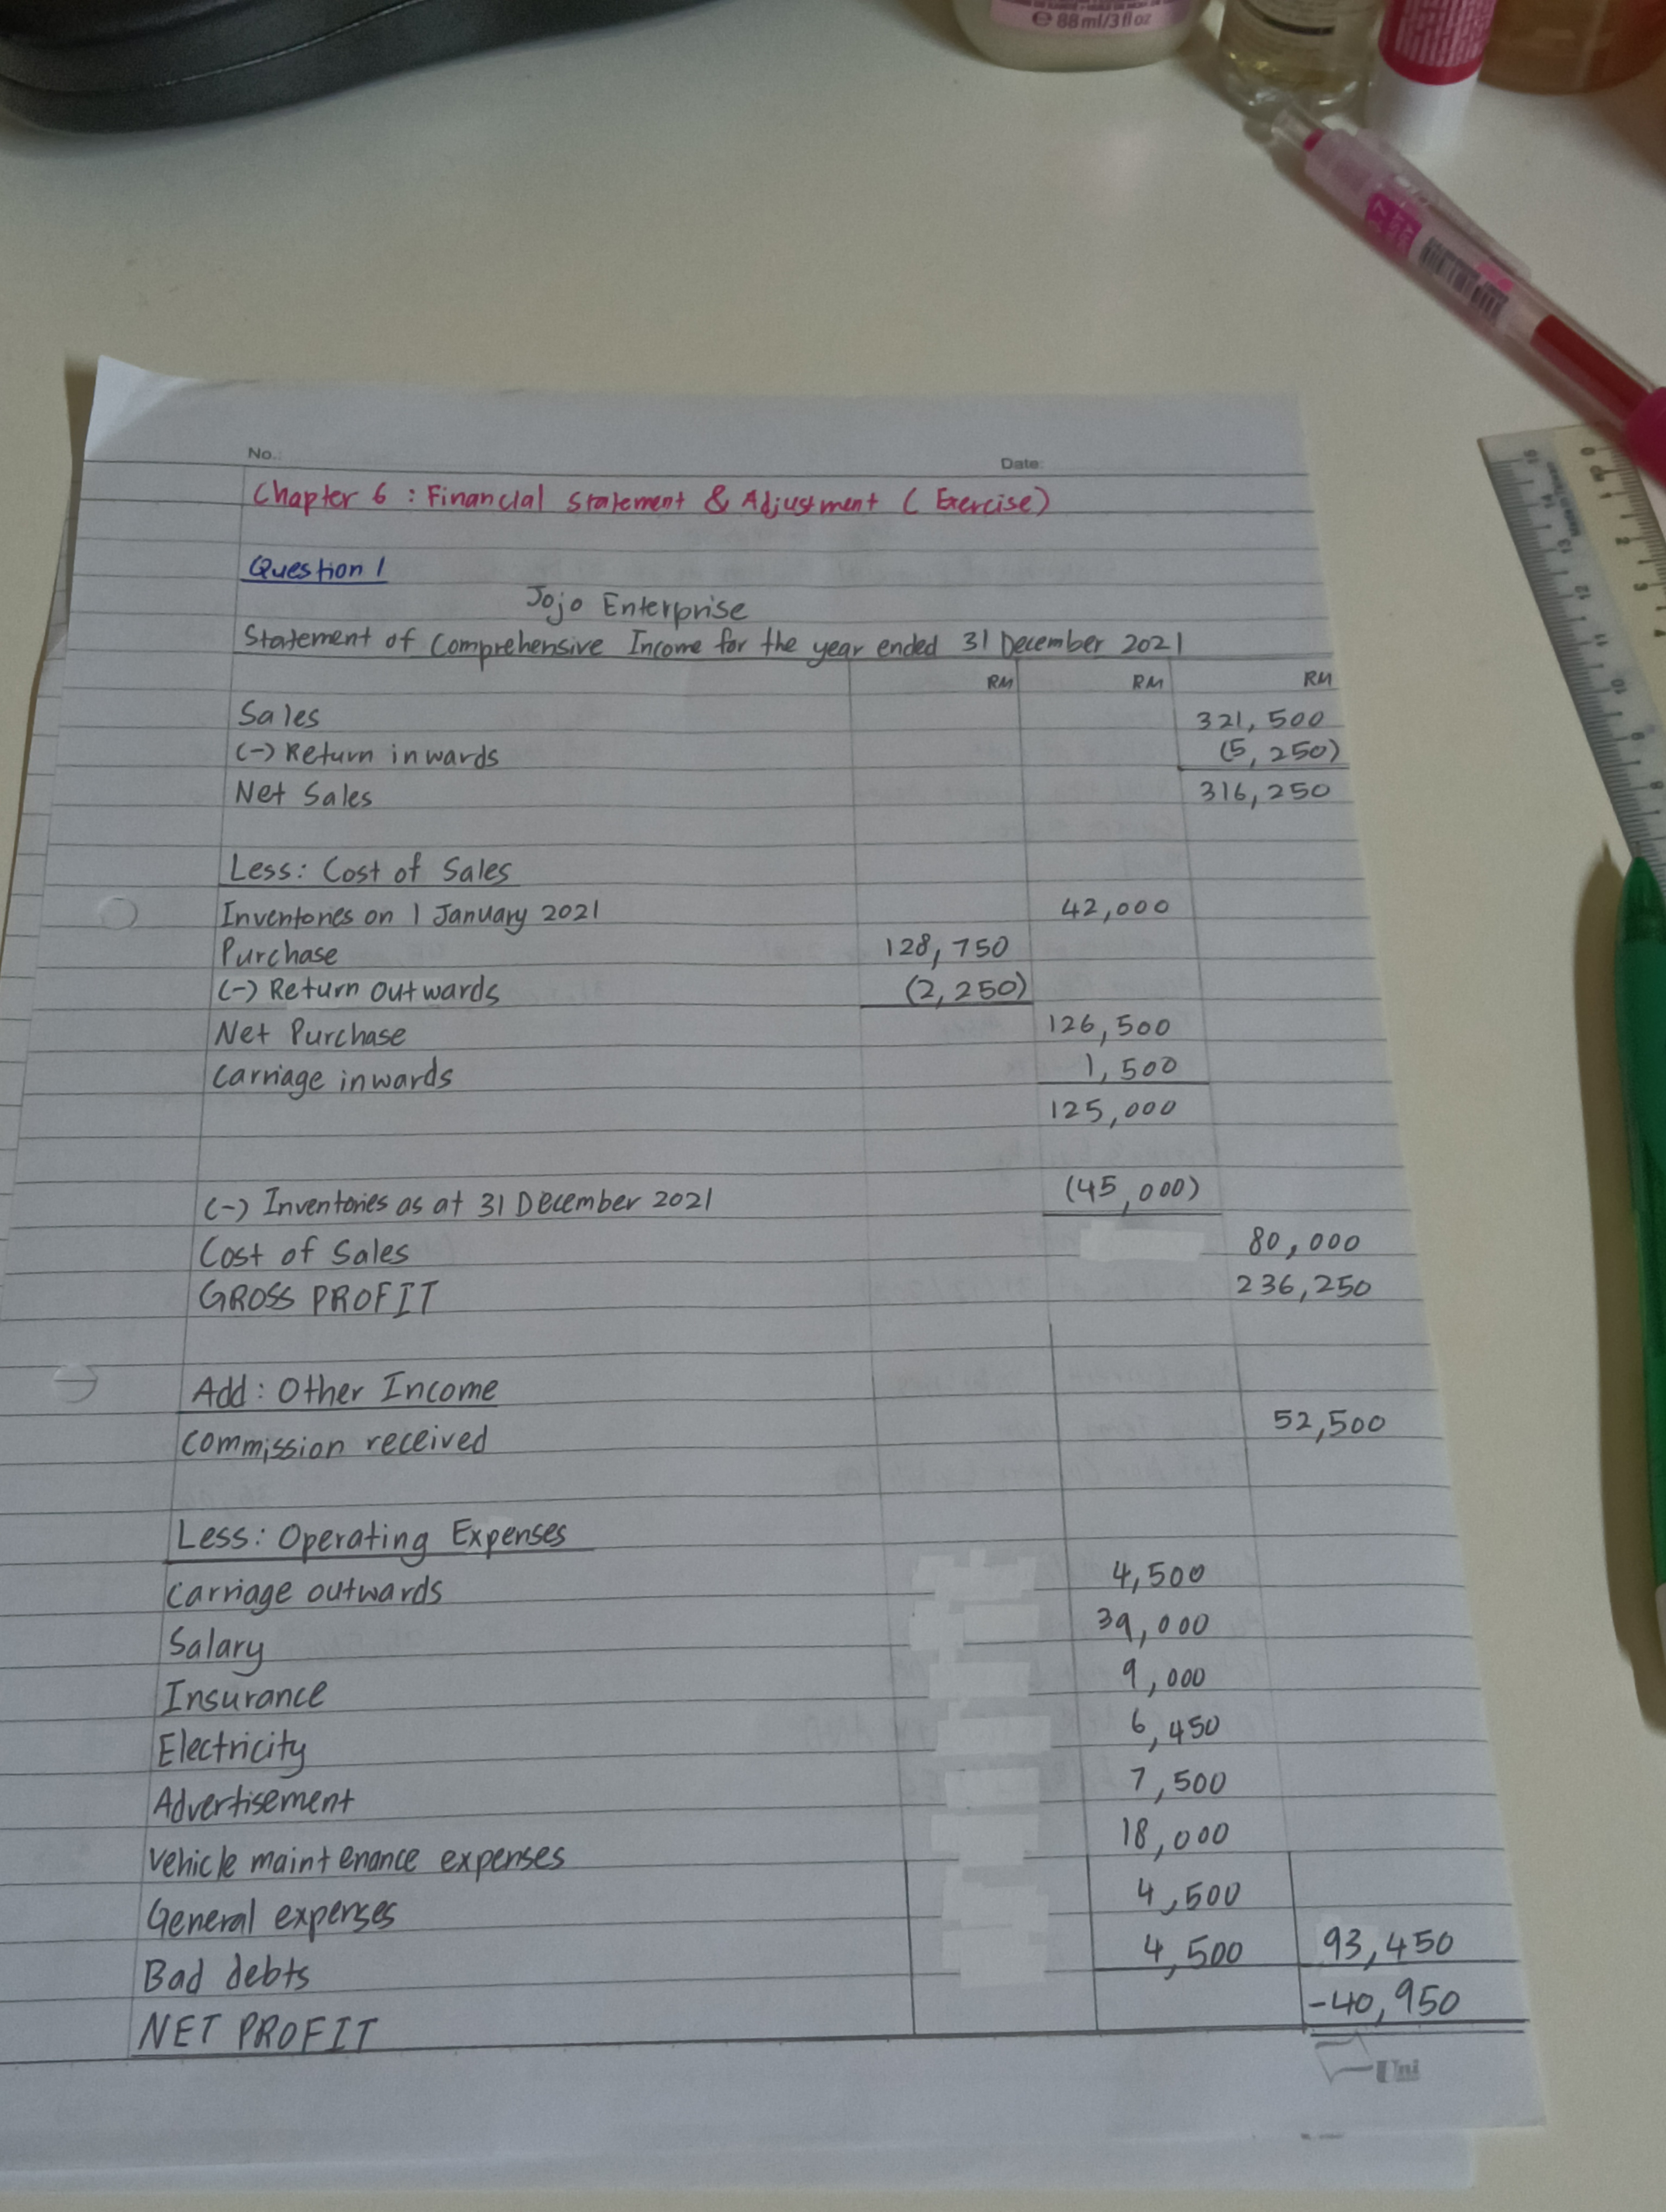 e 88ml/3 fl oz
No.:
Date:
Chapter 6 : Financial Statement & Adjustment ( Exercise)
Question 1
Jojo Enterprise
Statement of Comprehensive Income for the year ended 31 December 2021
RM RM RM
Sales 321,500
(-) Return inwards (5,250)
Net Sales 316,250
Less: Cost of Sales
Inventories on 1 January 2021 42,000
Purchase 128,750
(-) Return Outwards (2,250)
Net Purchase 126,500
Carriage inwards 1,500
125,000
(-) Inventories as at 31 December 2021 (45,000)
Cost of Sales 80,000
GROSS PROFIT 236,250
Add: Other Income
Commission received 52,500
Less: Operating Expenses
Carriage outwards 4,500
Salary 39,000
Insurance 9,000
Electricity 6,450
Advertisement 7,500
Vehicle maintenance expenses 18,000
General expenses 4,500
Bad debts 4,500 93,450
NET PROFIT -40,950
Uni